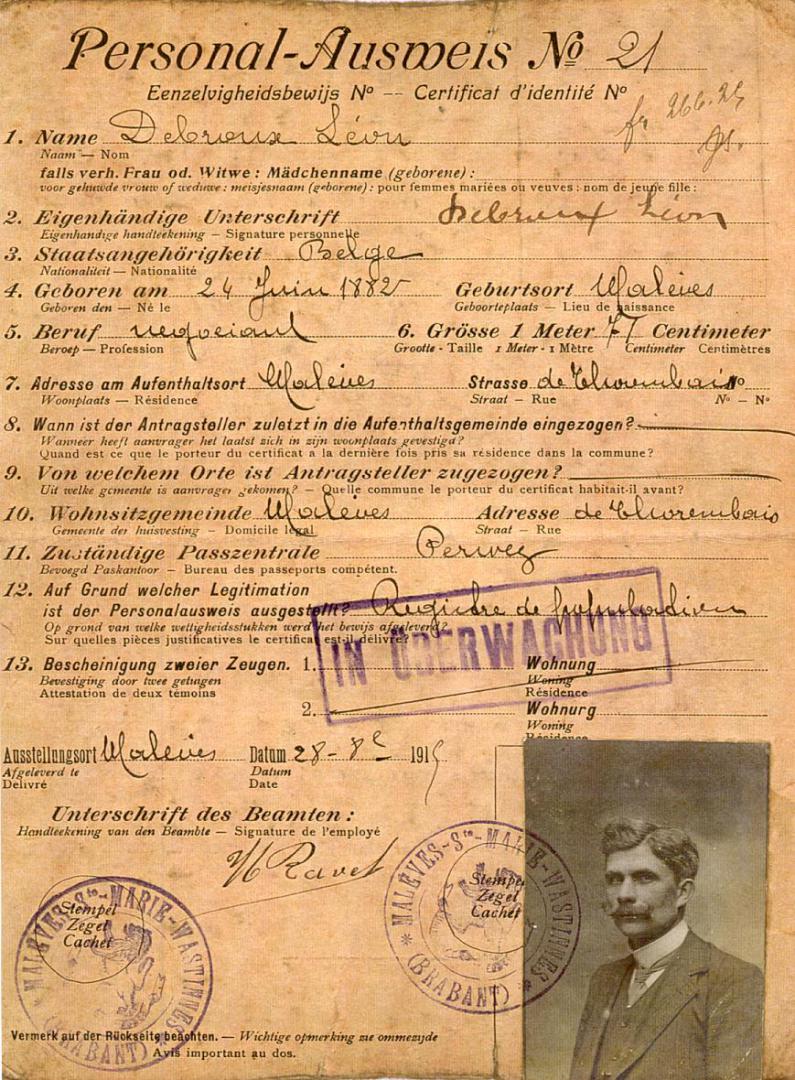 Personal-Ausweis No 21
Eenzelvigheidsbewijs No -- Certificat d'identité No
1. Name Debroux Léon
Naam — Nom
falls verh. Frau od. Witwe : Mädchenname (geborene) :
voor gehuwde vrouw of weduwe : meisjesnaam (geborene) : pour femmes mariées ou veuves : nom de jeune fille :
2. Eigenhändige Unterschrift Debroux Léon
Eigenhandige handteekening — Signature personnelle
3. Staatsangehörigkeit Belge
Nationaliteit — Nationalité
4. Geboren am 24 Juin 1882 Geburtsort Malèves
Geboren den — Né le Geboorteplaats — Lieu de naissance
5. Beruf negociant 6. Grösse 1 Meter 77 Centimeter
Beroep — Profession Grootte - Taille 1 Meter - 1 Mètre Centimeter Centimètres
7. Adresse am Aufenthaltsort Malèves Strasse de Thorembais No
Woonplaats — Résidence Straat — Rue No — No
8. Wann ist der Antragsteller zuletzt in die Aufenthaltsgemeinde eingezogen?
Wanneer heeft aanvrager het laatst zich in zijn woonplaats gevestigd?
Quand est ce que le porteur du certificat a la dernière fois pris sa résidence dans la commune?
9. Von welchem Orte ist Antragsteller zugezogen?
Uit welke gemeente is aanvrager gekomen? — Quelle commune le porteur du certificat habitait-il avant?
10. Wohnsitzgemeinde Malèves Adresse de Thorembais
Gemeente der huisvesting — Domicile légal Straat — Rue
11. Zuständige Passzentrale Perwez
Bevoegd Paskantoor — Bureau des passeports compétent.
12. Auf Grund welcher Legitimation
ist der Personalausweis ausgestellt? Registre de population
Op grond van welke wettigheidsstukken werd het bewijs afgeleverd?
Sur quelles pièces justificatives le certificat est-il délivré?
IN ÜBERWACHUNG
13. Bescheinigung zweier Zeugen. 1. Wohnung
Bevestiging door twee getuigen Woning
Attestation de deux témoins Résidence
2. Wohnung
Woning
Résidence
Ausstellungsort Malèves Datum 28 - 8e 1915
Afgeleverd te Datum
Délivré Date
Unterschrift des Beamten :
Handteekening van den Beambte — Signature de l'employé
H Ravet
MALÈVES-Ste-MARIE-WASTINNES
(BRABANT)
Stempel
Zegel
Cachet
MALÈVES-Ste-MARIE-WASTINNES
(BRABANT)
Stempel
Zegel
Cachet
Vermerk auf der Rückseite beachten. — Wichtige opmerking zie ommezijde
Avis important au dos.